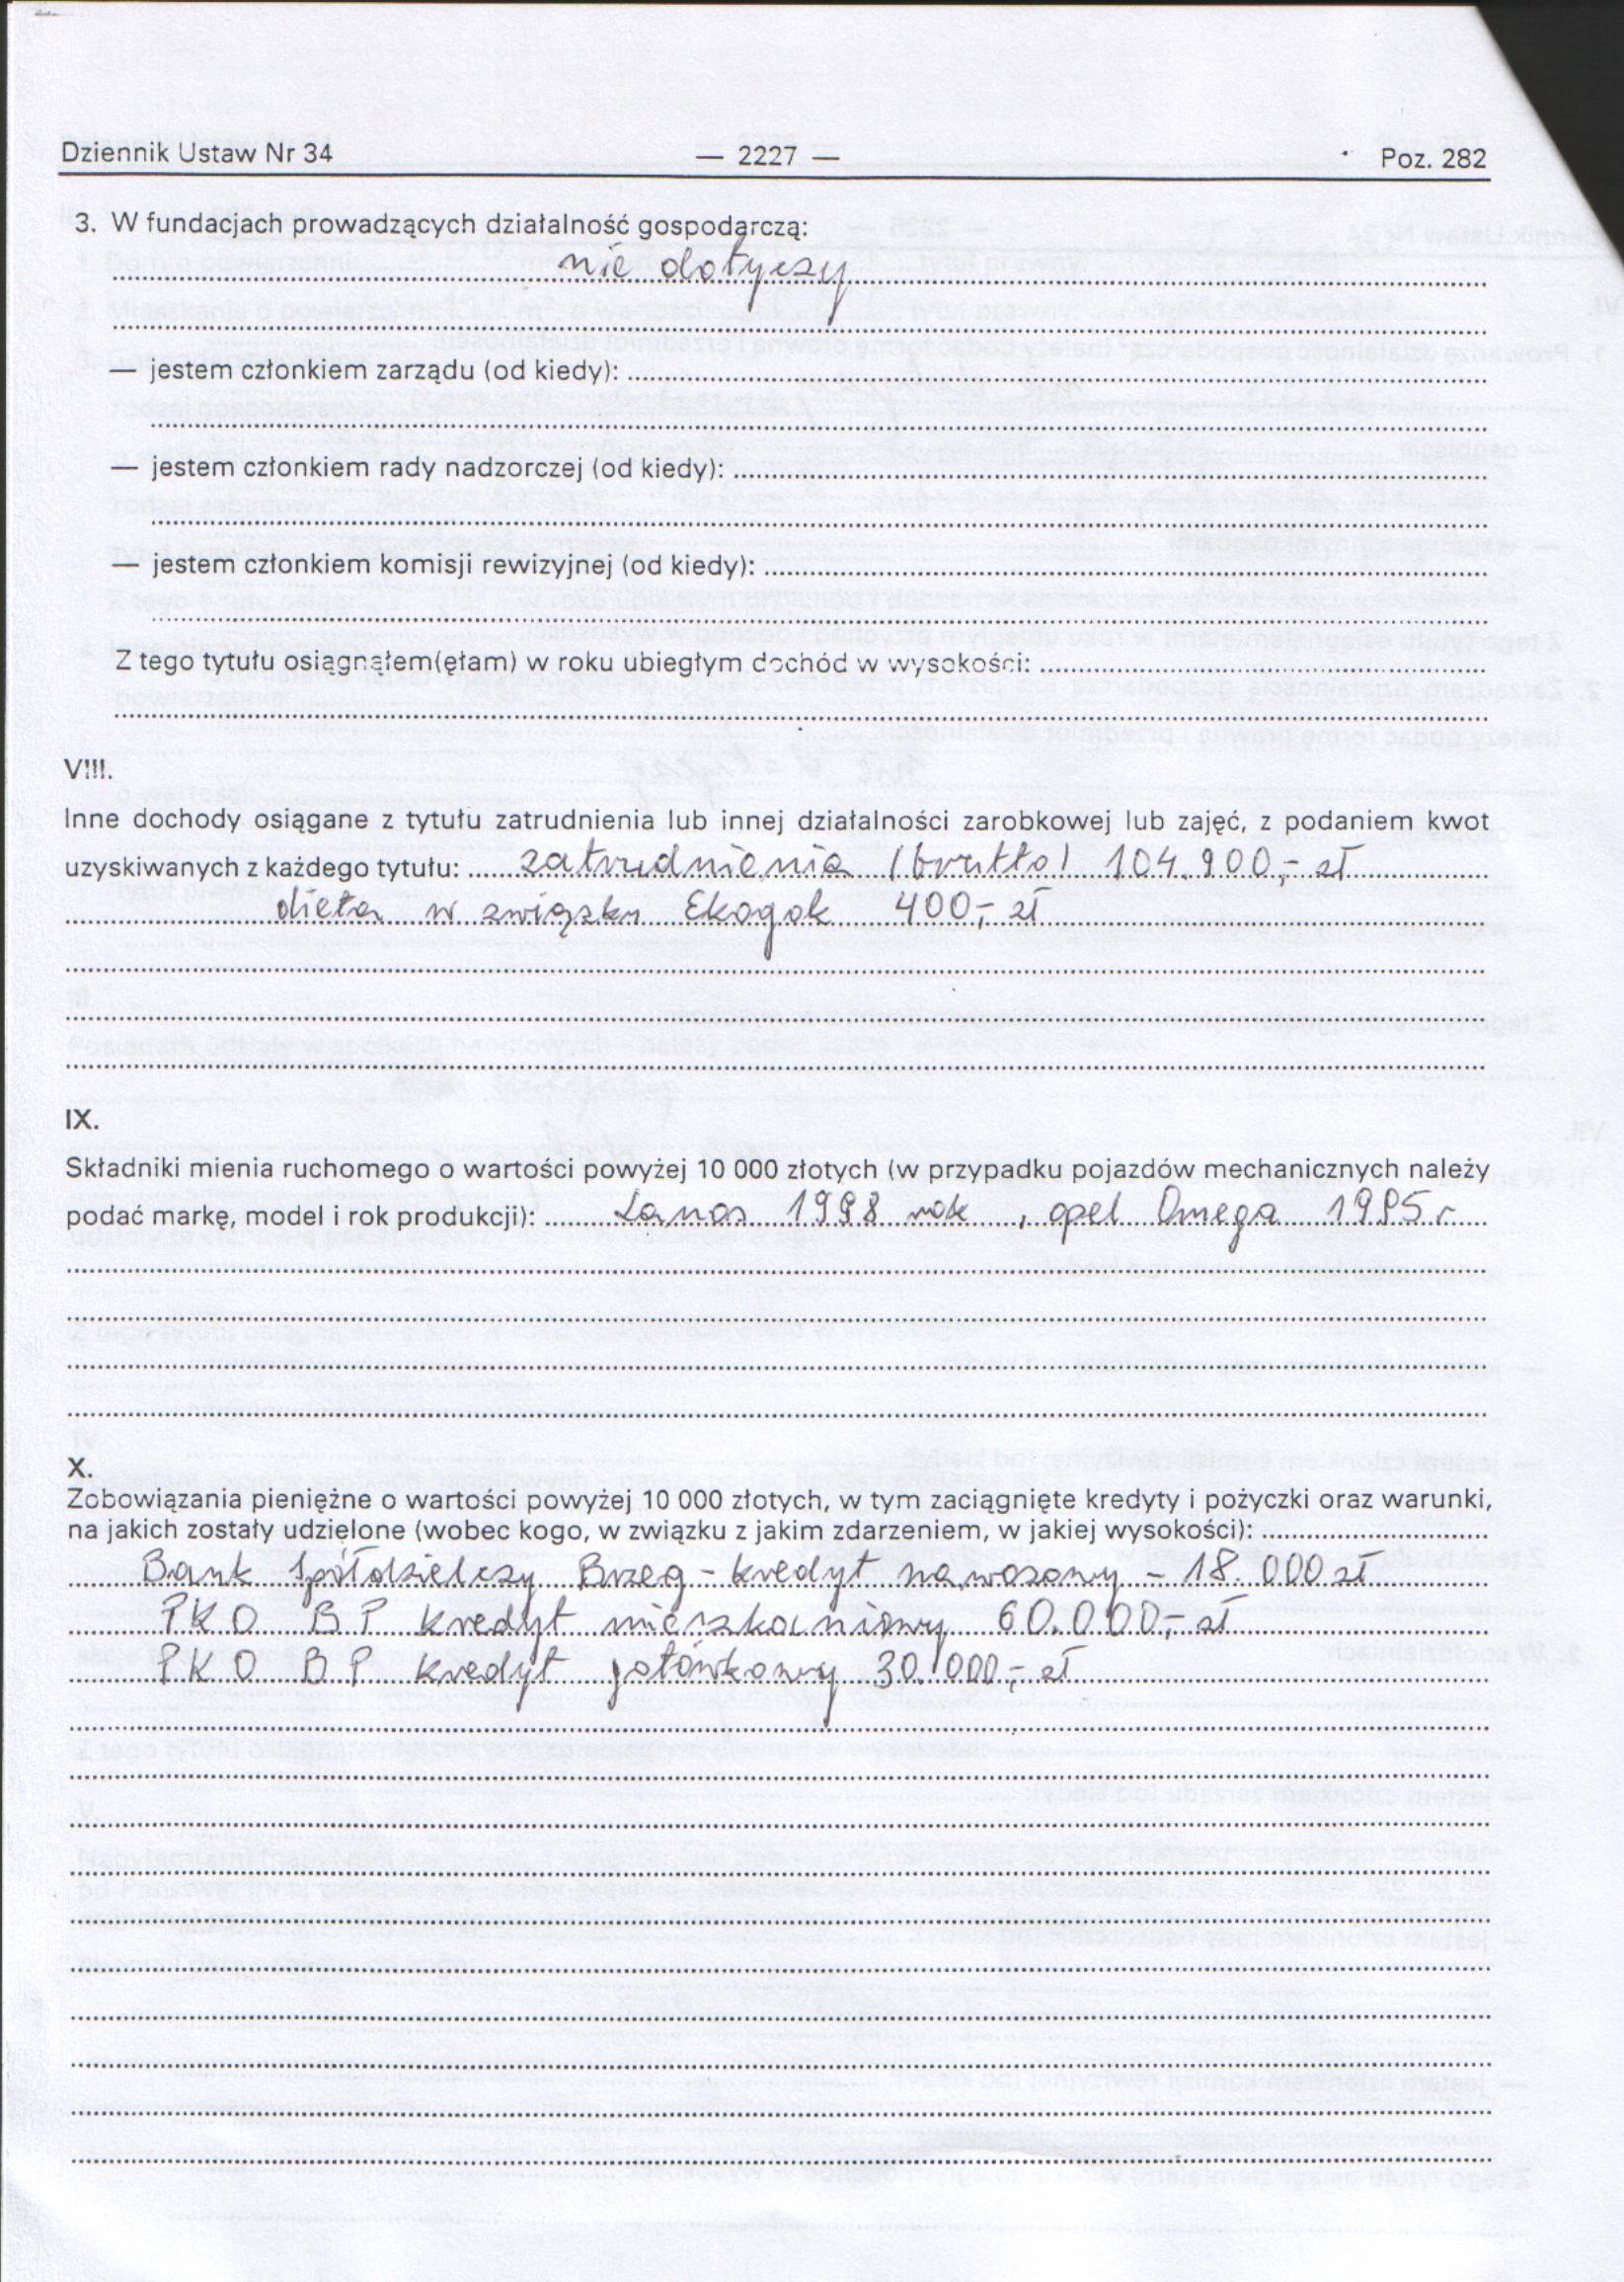 Dziennik Ustaw Nr 34 — 2227 — Poz. 282
3. W fundacjach prowadzących działalność gospodarczą:
nie dotyczy
— jestem członkiem zarządu (od kiedy):
— jestem członkiem rady nadzorczej (od kiedy):
— jestem członkiem komisji rewizyjnej (od kiedy):
Z tego tytułu osiągnąłem(ęłam) w roku ubiegłym dochód w wysokości:
VIII.
Inne dochody osiągane z tytułu zatrudnienia lub innej działalności zarobkowej lub zajęć, z podaniem kwot
uzyskiwanych z każdego tytułu: zatrudnienia (brutto) 104.900,- zł
dieta w związku Ekogok 400,- zł
IX.
Składniki mienia ruchomego o wartości powyżej 10 000 złotych (w przypadku pojazdów mechanicznych należy
podać markę, model i rok produkcji): Lanos 1998 rok, opel Omega 1995 r
X.
Zobowiązania pieniężne o wartości powyżej 10 000 złotych, w tym zaciągnięte kredyty i pożyczki oraz warunki,
na jakich zostały udzielone (wobec kogo, w związku z jakim zdarzeniem, w jakiej wysokości):
Bank Spółdzielczy Brzeg - kredyt nawozowy - 18.000 zł
PKO BP kredyt mieszkaniowy 60.000,- zł
PKO BP kredyt gotówkowy 30.000,- zł